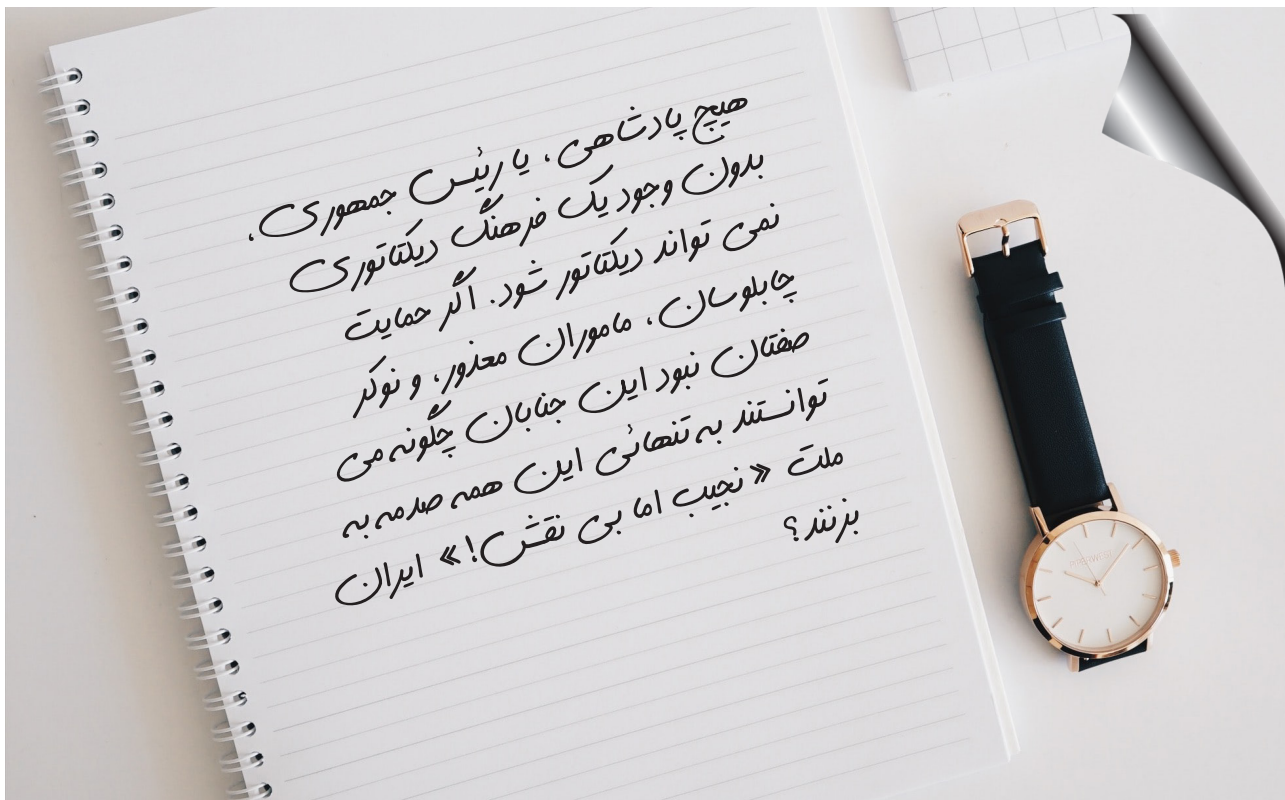 هیچ پادشاهی، یا رئیس جمهوری،
بدون وجود یک فرهنگ دیکتاتوری
نمی تواند دیکتاتور شود. اگر حمایت
چاپلوسان، ماموران معذور، و نوکر
صفتان نبود این جنابان چگونه می
توانستند به تنهائی این همه صدمه به
ملت «نجیب اما بی نقش!» ایران
بزنند؟